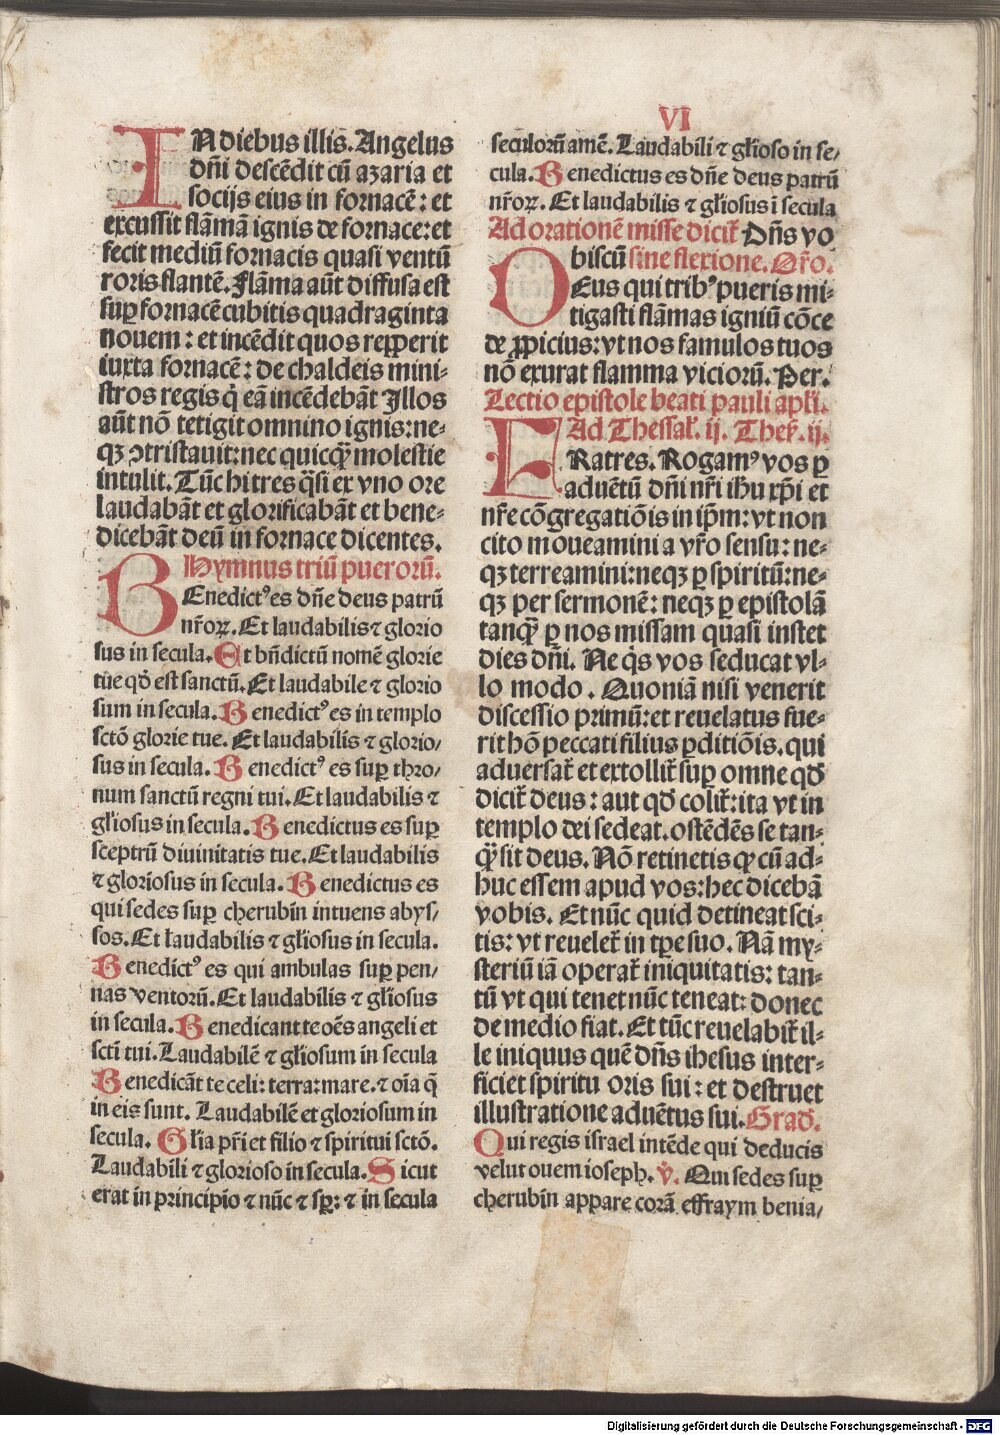 VI
IN diebus illis. Angelus
dñi descēdit cū azaria et
socijs eius in fornacē: et
excussit flāmā ignis de fornace: et
fecit mediū fornacis quasi ventū
roris flantē. Flāma aūt diffusa est
suꝑ fornacē cubitis quadraginta
nouem: et incēdit quos repꝑerit
iuxta fornacē: de chaldeis mini-
stros regis q̇ eā incēdebāt Illos
aūt nō tetigit omnino ignis: ne-
qꝫ ↄtristauit: nec quicꝙ̃ molestie
intulit. Tūc hi tres q̈si ex vno ore
laudabāt et glorificabāt et bene-
dicebāt deū in fornace dicentes.
Hymnus triū puerorū.
BEnedictꝰ es dñe deus patrū
nr̄oꝝ. Et laudabilis ⁊ glorio
sus in secula. Et bn̄dictū nomē glorie
tue qđ est sanctū. Et laudabile ⁊ glorio
sum in secula. Benedictꝰ es in templo
sctō glorie tue. Et laudabilis ⁊ glorio/
sus in secula. Benedictꝰ es suꝑ thro/
num sanctū regni tui. Et laudabilis ⁊
gl'iosus in secula. Benedictus es suꝑ
sceptrū diuinitatis tue. Et laudabilis
⁊ gloriosus in secula. Benedictus es
qui sedes suꝑ cherubin intuens abys/
sos. Et laudabilis ⁊ gl'iosus in secula.
Benedictꝰ es qui ambulas suꝑ pen/
nas ventorū. Et laudabilis ⁊ gl'iosus
in secula. Benedicant te oēs angeli et
scti tui. Laudabilē ⁊ gl'iosum in secula
Benedicāt te celi: terra: mare. ⁊ oīa q̄
in eis sunt. Laudabilē et gloriosum in
secula. Gl'ia pr̄i et filio ⁊ spiritui sctō.
Laudabili ⁊ glorioso in secula. Sicut
erat in principio ⁊ nūc ⁊ sꝑ: ⁊ in secula
seculorū amē. Laudabili ⁊ gl'ioso in se/
cula. Benedictus es dñe deus patrū
nr̄oꝝ. Et laudabilis ⁊ gl'iosus ī secula
Ad orationē misse dicit̄ Dñs vo
biscū sine flexione. Or̄o.
DEus qui tribꝰ pueris mi-
tigasti flāmas igniū cōce
de ꝓpicius: vt nos famulos tuos
nō exurat flamma viciorū. Per.
Lectio epistole beati pauli apl'i.
Ad Thessal'. ij. Thes̄. ij.
FRatres. Rogamꝰ vos ꝑ
aduētū dñi nr̄i ihū xp̄i et
nr̄e cōgregatiōis in ip̄m: vt non
cito moueamini a vr̄o sensu: ne-
qꝫ terreamini: neqꝫ ꝑ spiritū: ne-
qꝫ per sermonē: neqꝫ ꝑ epistolā
tanꝙ̃ ꝑ nos missam quasi instet
dies dñi. Ne q̇s vos seducat vl-
lo modo. Quoniā nisi venerit
discessio primū: et reuelatus fue-
rit hō peccati filius ꝑditiōis. qui
aduersat̄ et extollit̄ suꝑ omne qđ
dicit̄ deus: aut qđ colit̄: ita vt in
templo dei sedeat. ostēdēs se tan-
ꝙ̃ sit deus. Nō retinetis ꝙ cū ad-
huc essem apud vos: hec dicebā
vobis. Et nūc quid detineat sci-
tis: vt reuelet̄ in tꝑe suo. Nā my-
steriū iā operat̄ iniquitatis: tan-
tū vt qui tenet nūc teneat: donec
de medio fiat. Et tūc reuelabit̄ il-
le iniquus quē dñs ihesus inter-
ficiet spiritu oris sui: et destruet
illustratione aduētus sui. Grad.
Qui regis israel intēde qui deducis
velut ouem ioseph. ℣. Qui sedes suꝑ
cherubin appare corā effraym benia/
Digitalisierung gefördert durch die Deutsche Forschungsgemeinschaft - DFG